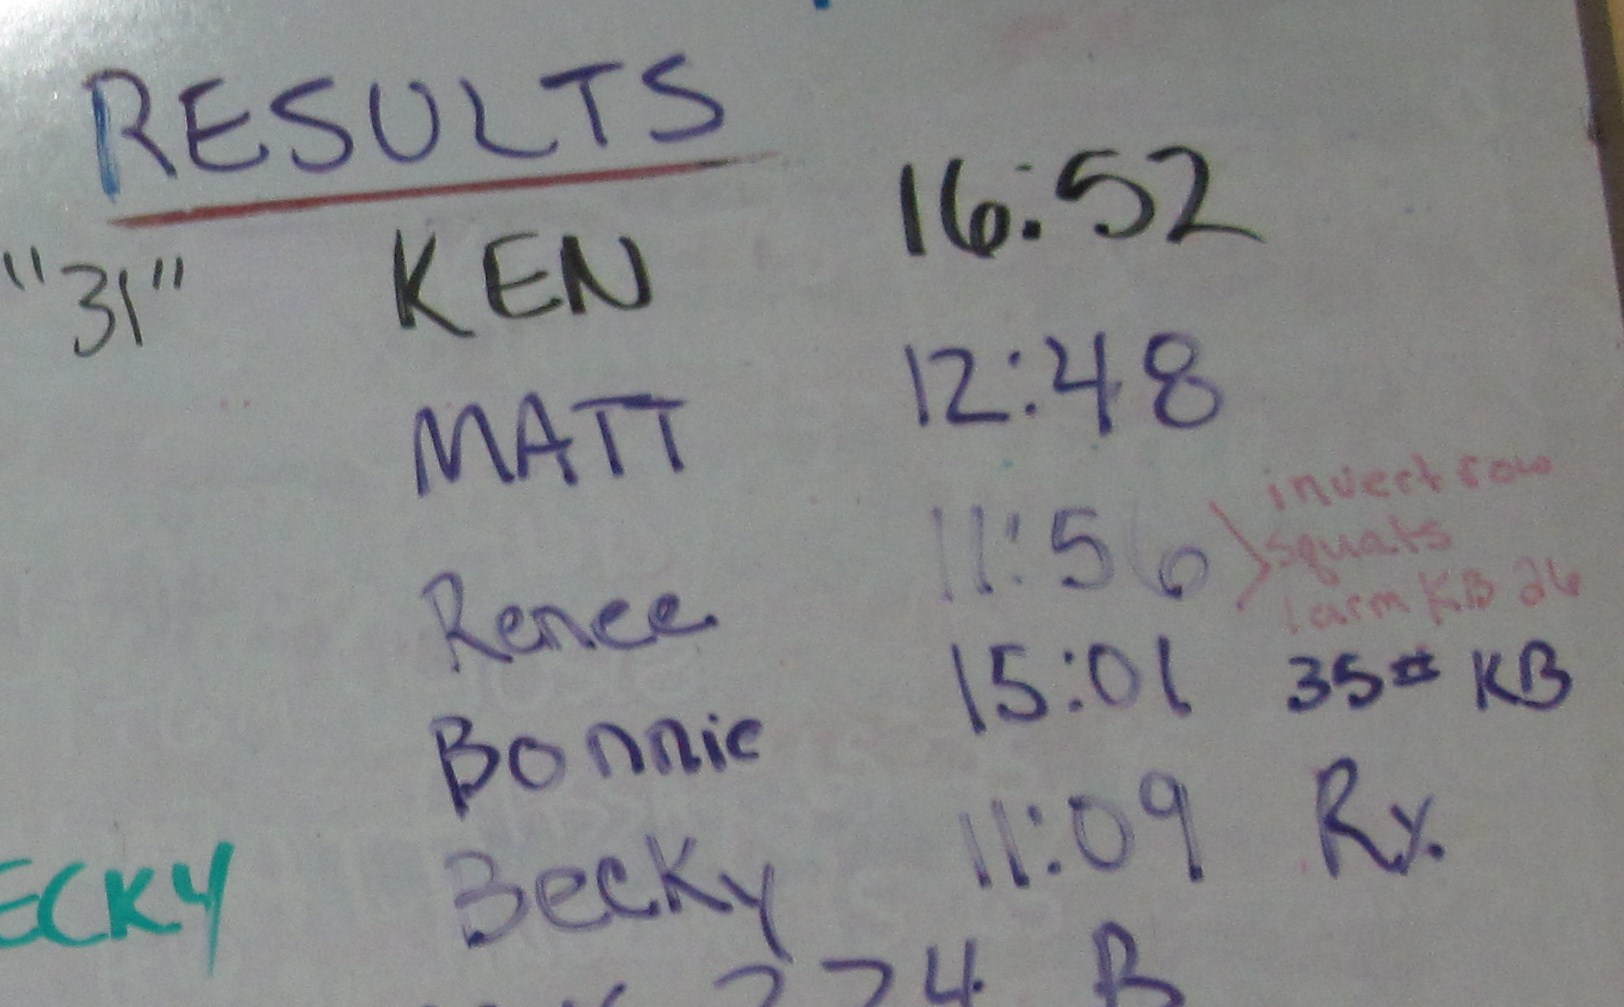 RESULTS
"31" KEN 16:52
MATT 12:48
Renee 11:56 invert row
squats
1 arm KB 26
Bonnie 15:01 35# KB
ECKY Becky 11:09 Rx.